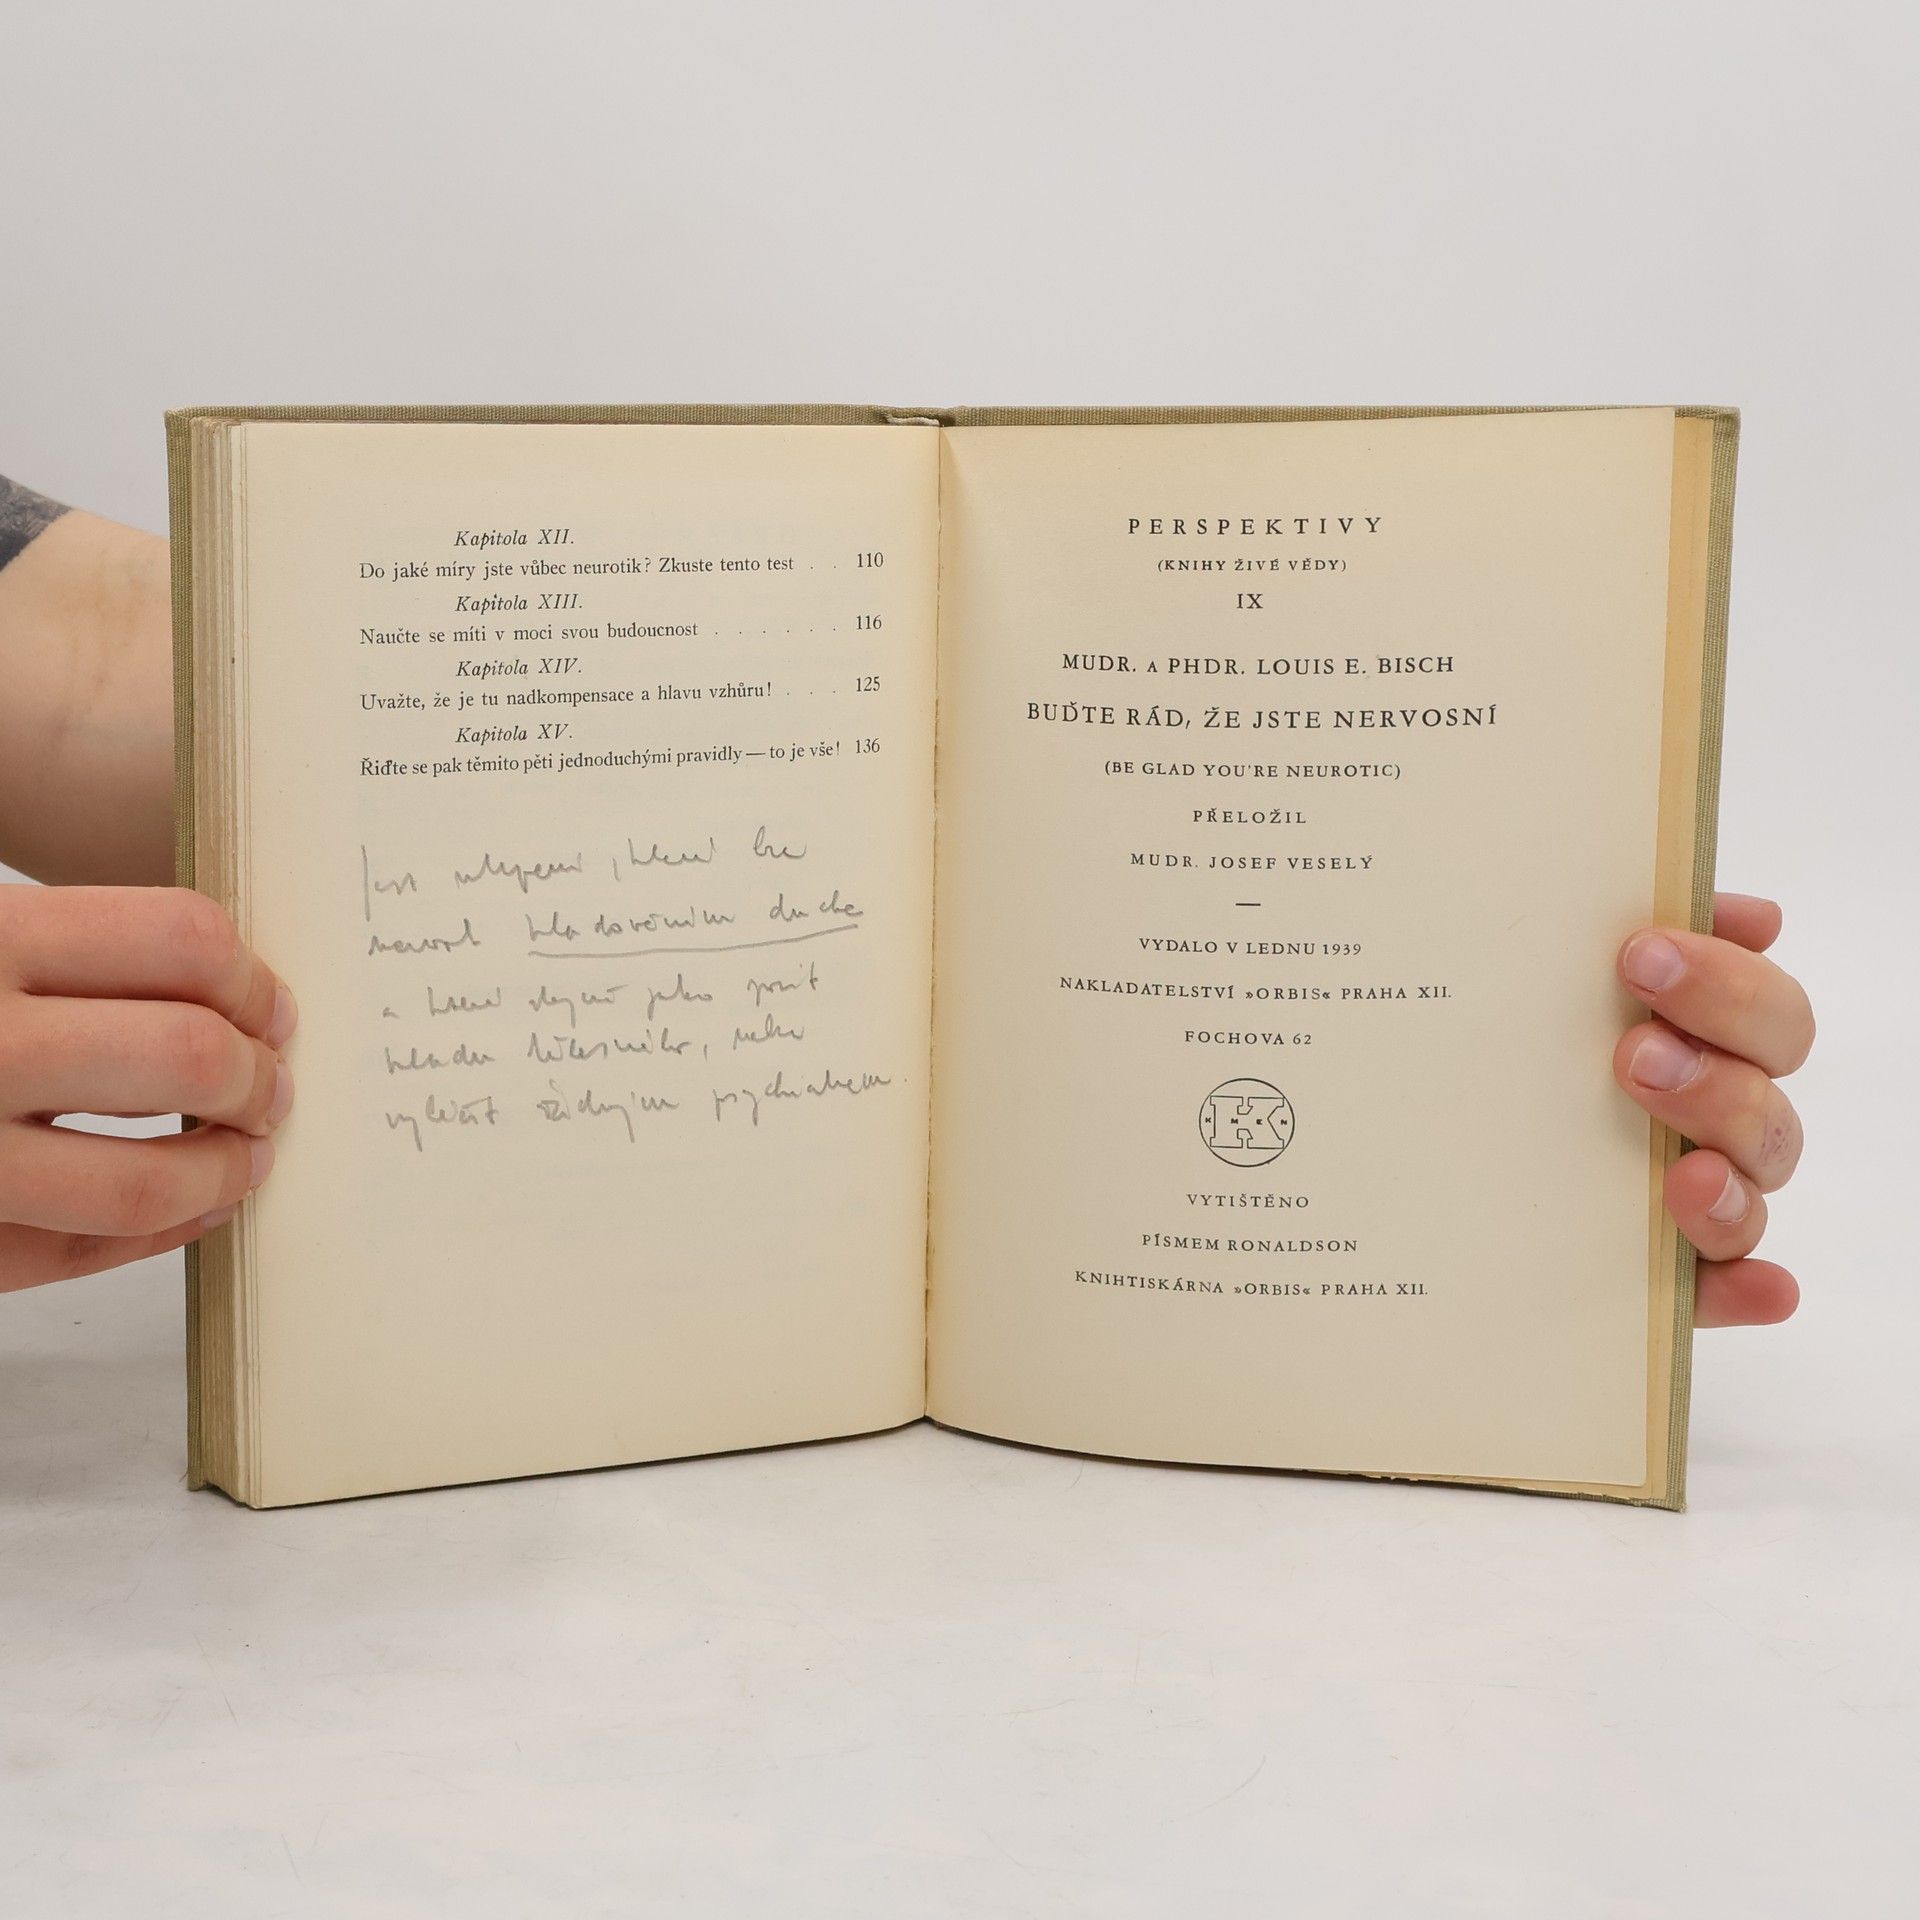 Kapitola XII.
Do jaké míry jste vůbec neurotik? Zkuste tento test . . 110
Kapitola XIII.
Naučte se míti v moci svou budoucnost . . . . . . 116
Kapitola XIV.
Uvažte, že je tu nadkompensace a hlavu vzhůru! . . . 125
Kapitola XV.
Řiďte se pak těmito pěti jednoduchými pravidly — to je vše! 136
Jest , lze
nazvat hladověním ducha
a které stejně jako pocit
hladu tělesného, nelze
vyléčit žádným psychiatrem.
PERSPEKTIVY
(KNIHY ŽIVÉ VĚDY)
IX
MUDR. A PHDR. LOUIS E. BISCH
BUĎTE RÁD, ŽE JSTE NERVOSNÍ
(BE GLAD YOU'RE NEUROTIC)
PŘELOŽIL
MUDR. JOSEF VESELÝ
—
VYDALO V LEDNU 1939
NAKLADATELSTVÍ »ORBIS« PRAHA XII.
FOCHOVA 62
K
KMEN
VYTIŠTĚNO
PÍSMEM RONALDSON
KNIHTISKÁRNA »ORBIS« PRAHA XII.